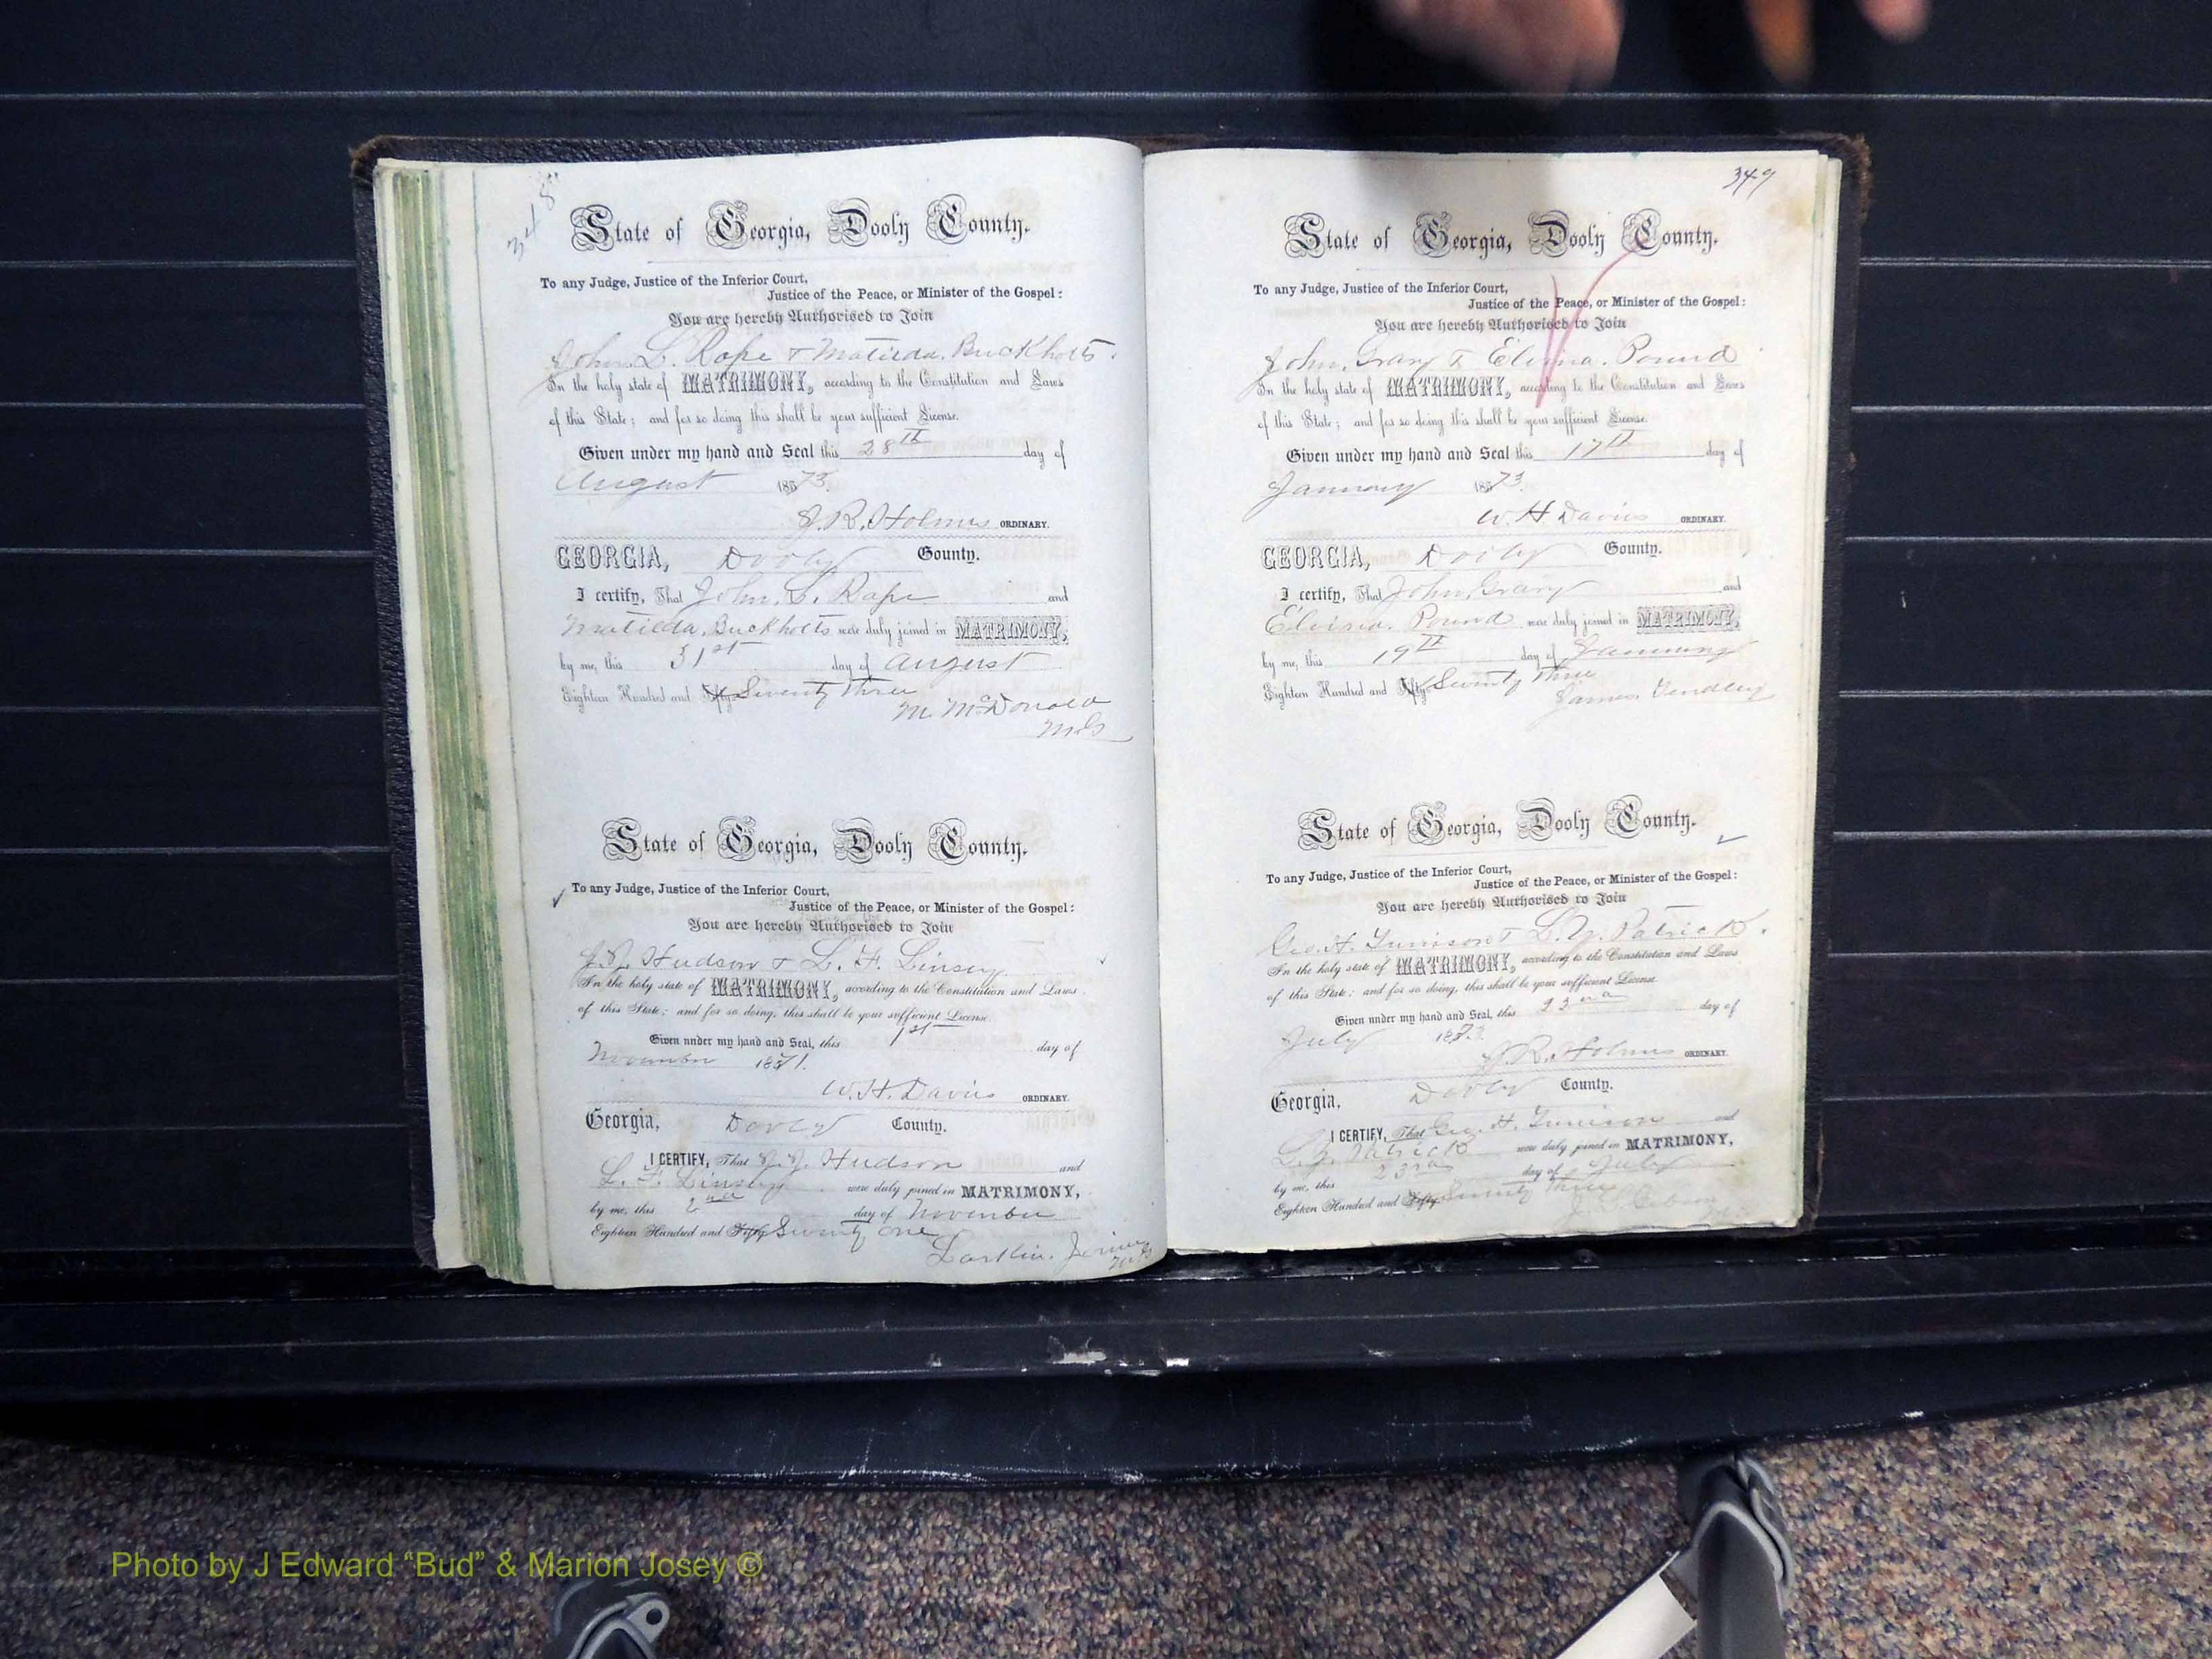 348
State of Georgia, Dooly County.
To any Judge, Justice of the Inferior Court,
Justice of the Peace, or Minister of the Gospel:
You are hereby Authorised to Join
John L. Rope & Matilda Buckholts.
In the holy state of MATRIMONY, according to the Constitution and Laws
of this State; and for so doing this shall be your sufficient License.
Given under my hand and Seal this 28th day of
August 1873.
J. R. Holmes ORDINARY.
GEORGIA, Dooly County.
I certify, That John L. Rope and
Matilda Buckholts were duly joined in MATRIMONY,
by me, this 31st day of August
Eighteen Hundred and Fifty Seventy three
M. McDonald
M.G
State of Georgia, Dooly County.
To any Judge, Justice of the Inferior Court,
Justice of the Peace, or Minister of the Gospel:
You are hereby Authorised to Join
J. J. Hudson & L. F. Linsey
In the holy state of MATRIMONY, according to the Constitution and Laws
of this State; and for so doing, this shall be your sufficient License.
Given under my hand and Seal, this 1st day of
November 1871.
W. H. Davies ORDINARY.
Georgia, Dooly County.
I CERTIFY, That J. J. Hudson and
L. F. Linsey were duly joined in MATRIMONY,
by me, this 2nd day of November
Eighteen Hundred and Fifty Seventy one
Larkin Joiner
M.G
349
State of Georgia, Dooly County.
To any Judge, Justice of the Inferior Court,
Justice of the Peace, or Minister of the Gospel:
You are hereby Authorised to Join
John Grary & Elvina Pound
In the holy state of MATRIMONY, according to the Constitution and Laws
of this State; and for so doing this shall be your sufficient License.
Given under my hand and Seal this 17th day of
January 1873.
W. H Davies ORDINARY.
GEORGIA, Dooly County.
I certify, That John Grary and
Elvina Pound were duly joined in MATRIMONY,
by me, this 19th day of January
Eighteen Hundred and Fifty Seventy three
James
State of Georgia, Dooly County.
To any Judge, Justice of the Inferior Court,
Justice of the Peace, or Minister of the Gospel:
You are hereby Authorised to Join
Geo. H. & L. Y. Patrick.
In the holy state of MATRIMONY, according to the Constitution and Laws
of this State; and for so doing, this shall be your sufficient License.
Given under my hand and Seal, this 22nd day of
July 1873.
J. R. Holmes ORDINARY.
Georgia, Dooly County.
I CERTIFY, That Geo. H. and
L. Y. Patrick were duly joined in MATRIMONY,
by me, this 23rd day of July
Eighteen Hundred and Fifty Seventy three
Photo by J Edward “Bud” & Marion Josey ©